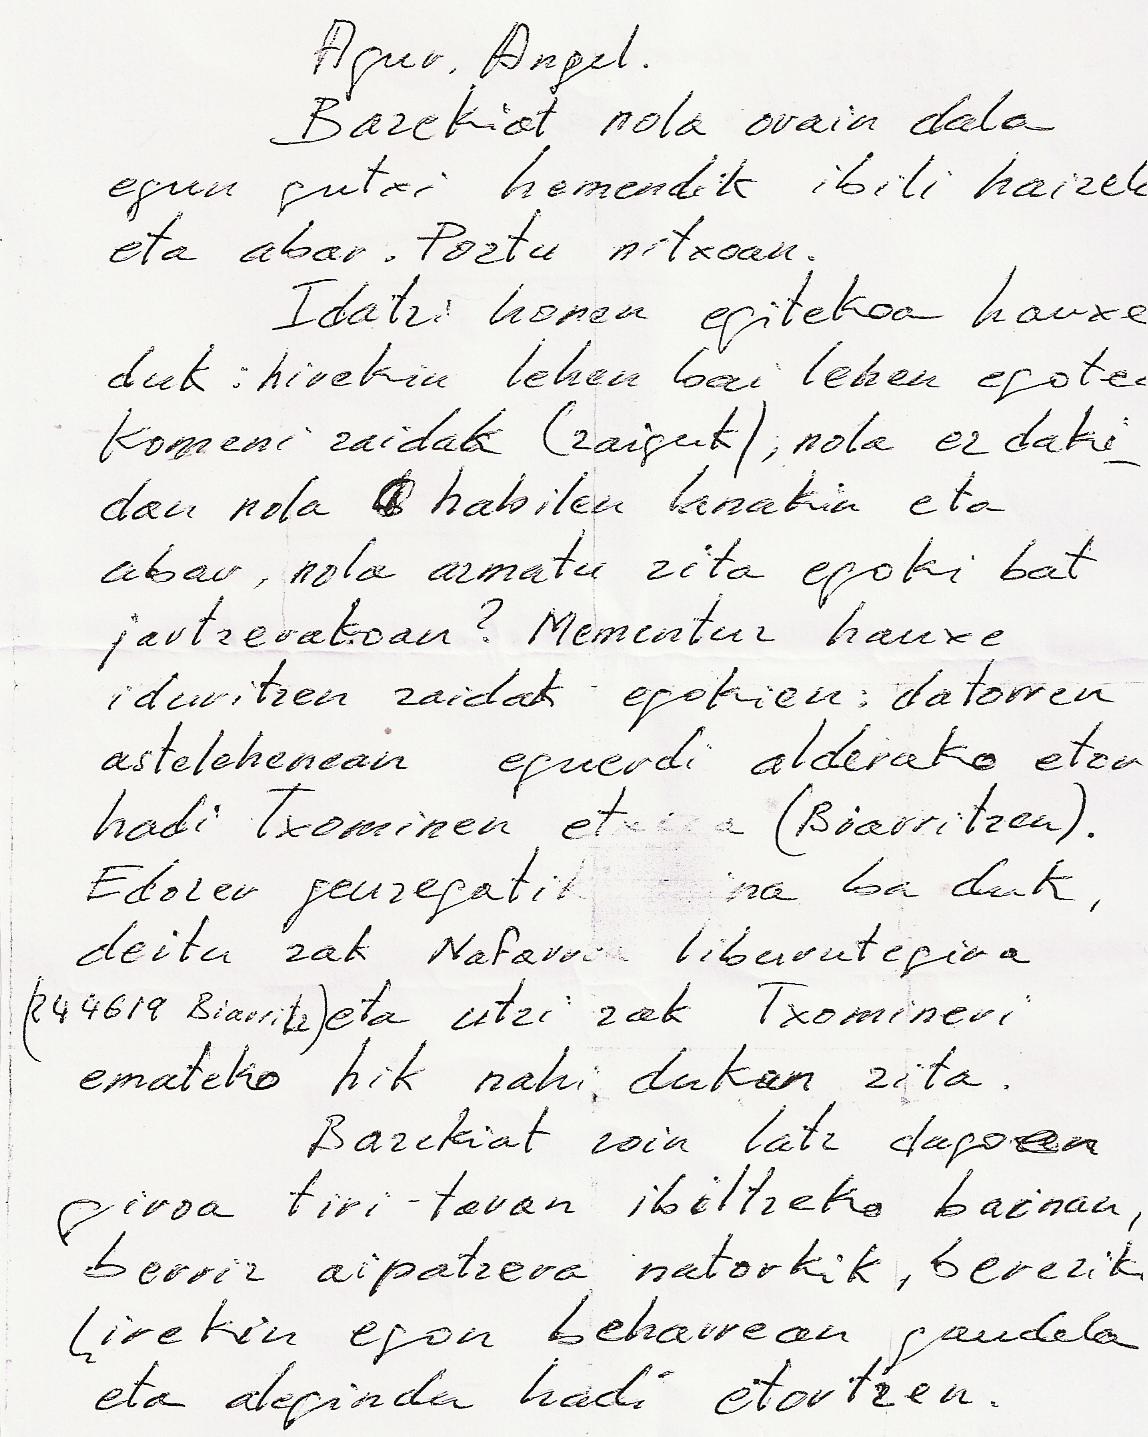 Agur, Angel.
Bazekiat nola orain dala
egun gutxi hemendik ibili haizela
eta abar. Poztu nitxoan.
Idatzi honen egitekoa hauxe
duk: hirekin lehen bai lehen egotea
komeni zaidak (zaiguk), nola ez daki-
dan nola habilen lanakin eta
abar, nola armatu zita egoki bat
jartzerakoan? Mementuz hauxe
iduritzen zaidak egokien: datorren
astelehenean eguerdi alderako etor
hadi Txominen (Biarritzen).
Edozer geuzegatik ba duk,
deitu zak Nafarroa liburutegira
(244619 Biarritz) eta utzi zak Txomineri
emateko hik nahi dukan zita.
Bazekiat zoin latz dagoen
giroa tiri-taran ibiltzeko bainan,
berriz aipatzera natorkik, bereziki
hirekin egon beharrean gaudela
eta alegindu hadi etortzen.